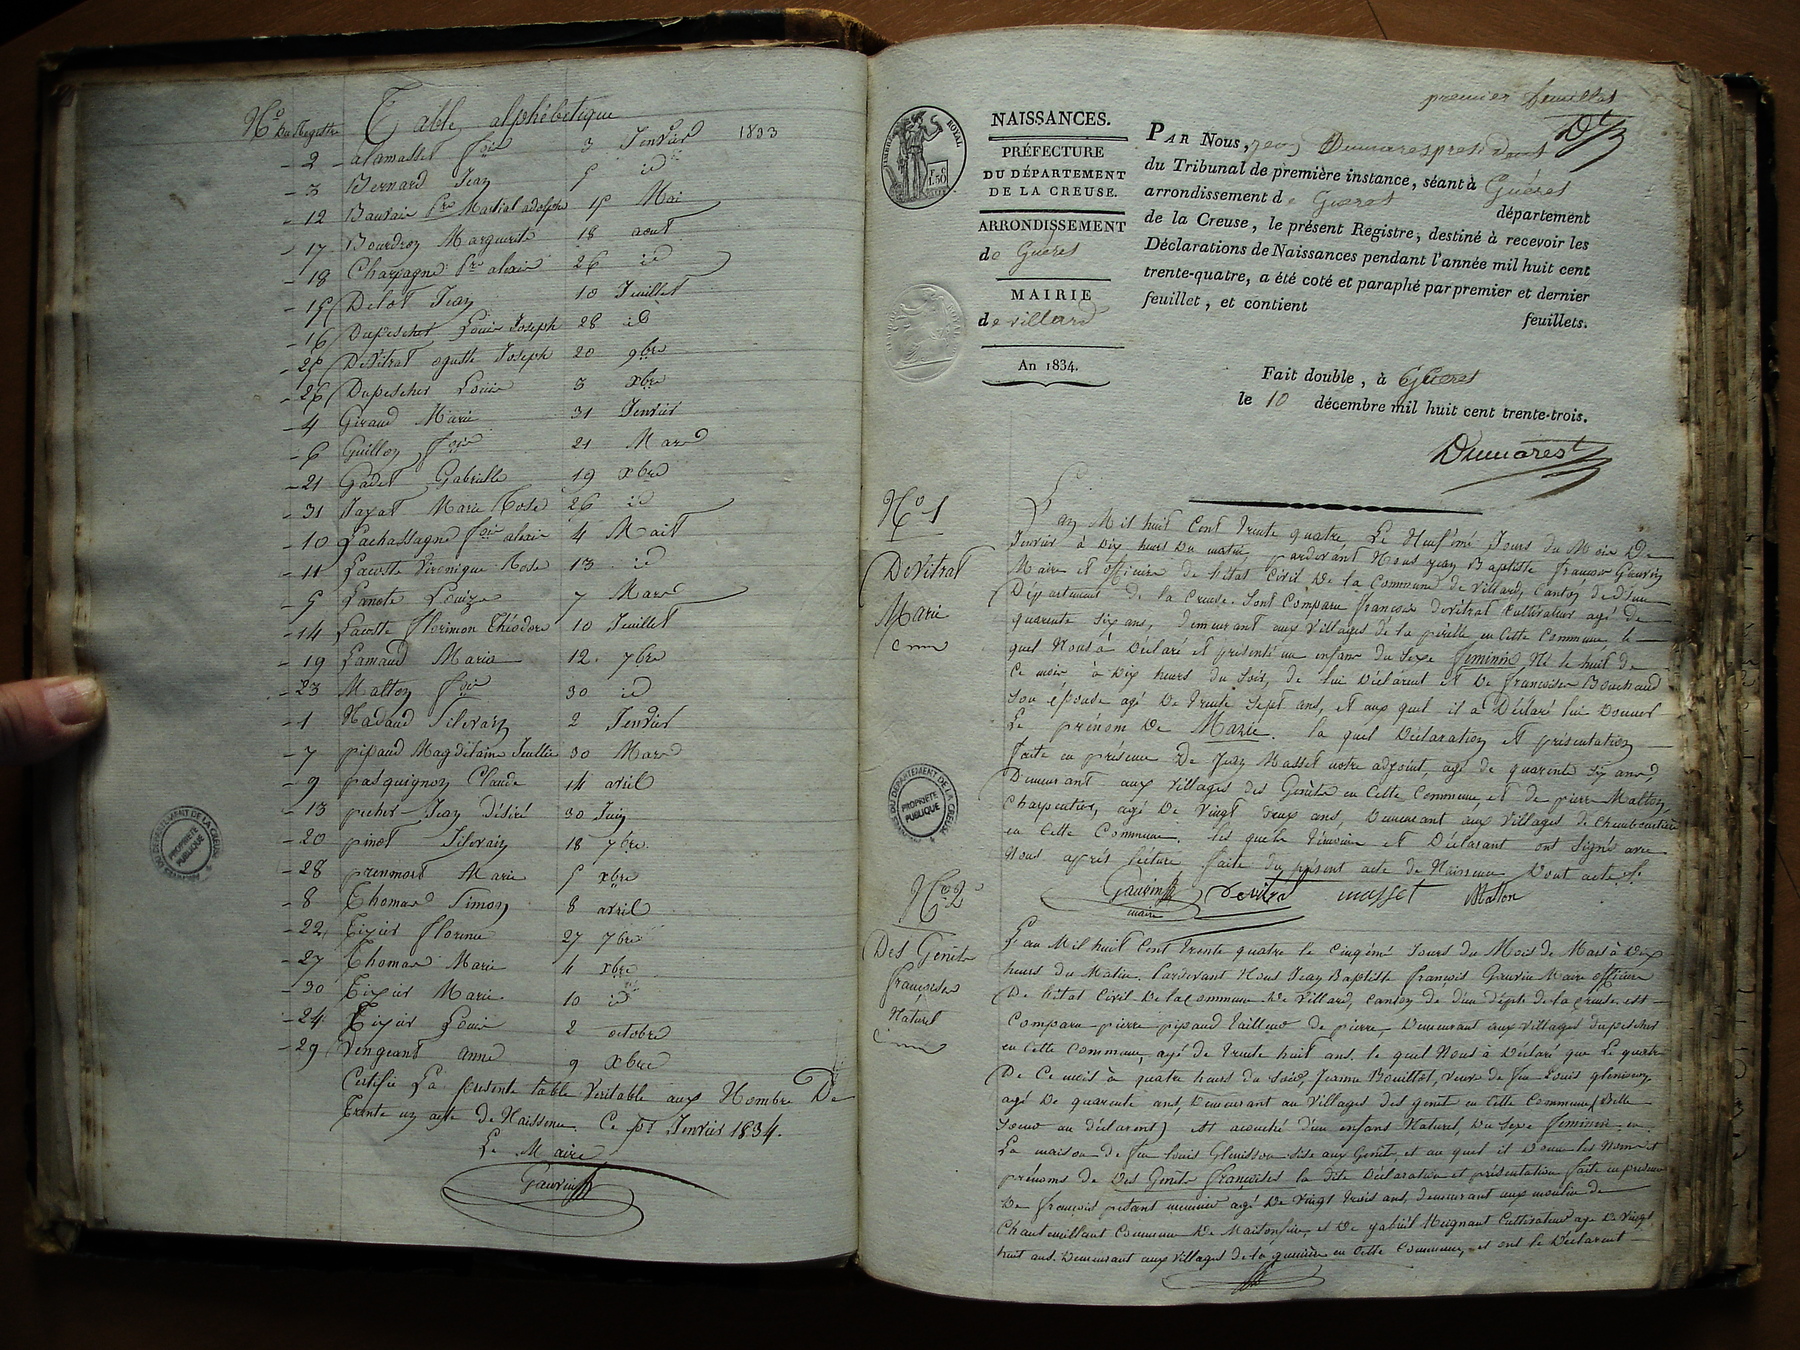 No Du Registre Table alphébétique
- 2 - alamasset foise 3 Jenvier 1833
- 3 Bernard Jean 5 id
- 12 Bauvais fre Martial adolphe 15 Mai
- 17 Bourdron Marguerite 18 aout
- 18 Chapagne fre alexis 26 id
- 15 Delot Jean 10 Jeuillet
- 16 Dupescher Louis Joseph 28 id
- 25 DeVitrat oguste Joseph 20 9bre
- 26 Dupescher Louise 3 xbre
- 4 Giraud Marie 31 Jenvier
- 6 Guillon foise 21 Mars
- 21 Gadet Gabrielle 19 xbre
- 31 Jayat Marie Rose 26 id
- 10 Lachassagne foise alexis 4 Mait
- 11 Lacotte Véronique Rose 13 id
- 5 Lanote Louize 7 Mars
- 14 Lacotte florimon Théodore 10 Jeuillet
- 19 Lamaud Maria 12 7bre
- 23 Malton foise 30 id
- 1 Nadaud Silevain 2 Jenvier
- 7 pipaud Magdelaine Jeullie 30 Mars
- 9 pasquignon Claude 14 avril
- 13 picher Jean Désiré 30 Juin
- 20 pinot Silevain 18 7bre
- 28 prenmort Marie 5 xbre
- 8 Thomas Simon 8 avril
- 22 Tixier florence 27 7bre
- 27 Thomas Marie 4 xbre
- 30 Tixier Marie 10 id
- 24 Tixier Louis 2 octobre
- 29 Vengeant anne 9 xbre
Certifié La présente table Véritable aux Nombre De
Trente un acte de Naissence. Ce 1er Jenvier 1834.
Le Maire
Gauvin
ARCHIVES DU DÉPARTEMENT DE LA CREUSE
PROPRIÉTÉ
PUBLIQUE
premier feuillet
TIMBRE ROYAL
F. C.
1.50
NAISSANCES.
PRÉFECTURE
DU DÉPARTEMENT
DE LA CREUSE.
ARRONDISSEMENT
de Guéret
MAIRIE
de Villard
An 1834.
PAR Nous, Dumarest président
du Tribunal de première instance, séant à Guéret
arrondissement de Guéret département
de la Creuse, le présent Registre, destiné à recevoir les
Déclarations de Naissances pendant l'année mil huit cent
trente-quatre, a été coté et paraphé par premier et dernier
feuillet, et contient feuillets.
Fait double, à Guéret
le 10 décembre mil huit cent trente-trois.
Dumarest
No 1
DeVitrat
Marie
L'an Mil huit Cent trente quatre, Le Neufième Jours du Mois De
Jenvier à Dix heurs Du matin pardevant Nous Jean Baptiste françois Gauvin
Maire et officier de L'état Civil De La Commune de Villard, Canton de Dun
Département de la Creuse. Sont Comparu françois devitrat Cultivateur agé de
quarente six ans, demeurant aux Villages de la pirelle en Cette Commune, le
quel Nous à Déclaré et présenté un enfans du Sexe feminin, Né le huit de
Ce mois à Dix heurs du Soir, de lui Déclarent et De françoise Bouchaud
Son épouse agé De trente Sept ans, et aux quel il a Déclaré lui Donner
Le prénom De Marie. la quel Déclaration et présentation
faite en présence De Jean Masset notre adjoint, agé de quarente six ans
Demeurant aux Villages des Genète en Cette Commune, et de pierre Malton
Charpentier, agé De Vingt deux ans, Demeurant aux Villages de
en Cette Commune. les quels témoins et Déclarant ont Signé avec
Nous après lecture faite du présent acte de Naissence Dont acte
ARCHIVES DU DÉPARTEMENT DE LA CREUSE
PROPRIÉTÉ
PUBLIQUE
Gauvin devitrat masset Malton
maire
No 2
Des Genète
françoise
Naturel
L'an Mil huit Cent trente quatre le Cinqième Jours du Mois de Mars à Dix
heurs du Matin. Pardevant Nous Jean Baptiste françois Gauvin Maire officier
De L'état Civil De la Commune De Villard, Canton de dun dépt de la Creuse. est
Comparu pierre pipaud tailleur de pierre, Demeurant aux Villages dupescher
en Cette Commune, agé de trente huit ans. le quel Nous à Déclaré que Le quatre
De Ce mois à quatre heurs du Soir, Jeanne Bouillot, veuve de feu Louis glenisson
agé De quarente ans, Demeurant au Villages des genet en Cette Commune (Belle
Soeur au déclarent) est acouché d'un enfans Naturel, Du Sexe feminin, en
La maison de feu Louis Glenisson Sise aux Genet, et au quel il Donne les Nom et
prénoms de Des Genète françoise la dite Déclaration et présentation faite en présence
De françois pertant meunier agé De Vingt trois ans, demeurant aux moulin de
Commune De Maisonfeine, et De gabriel Meignant Cultivateur age De Vingt
huit ans. Demeurant aux Villages de la en Cette Commune, et ont le Déclarent